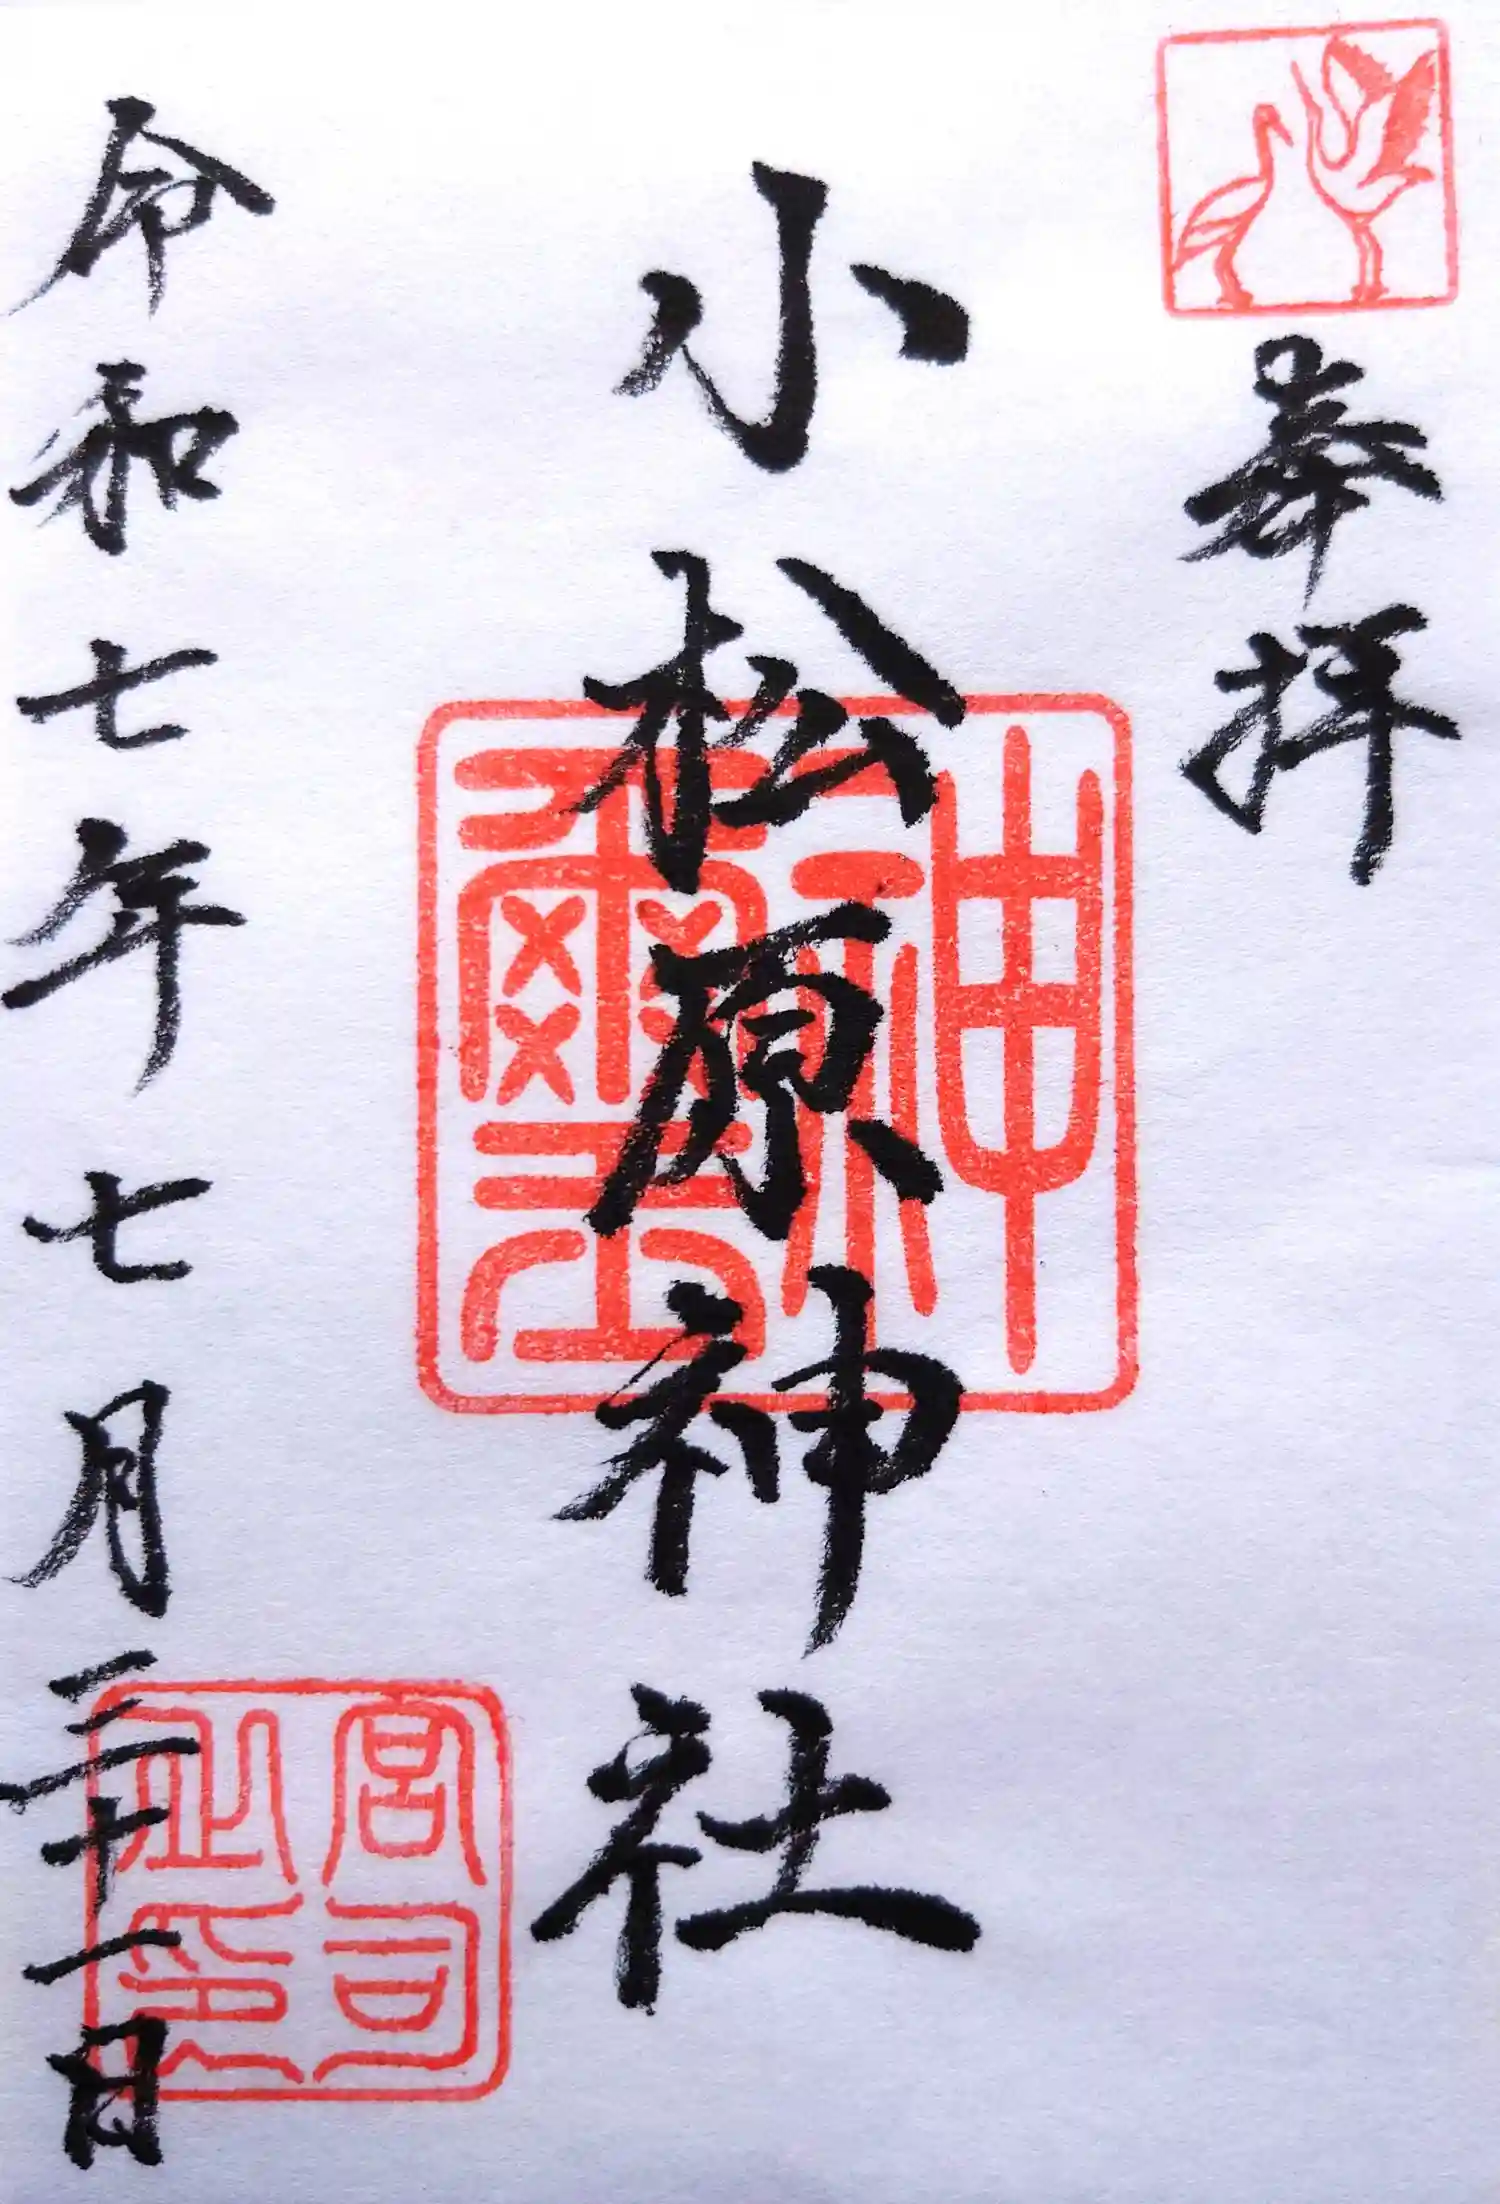 奉拝
小松原神社
神璽
令和七年七月三十一日
宮司之印